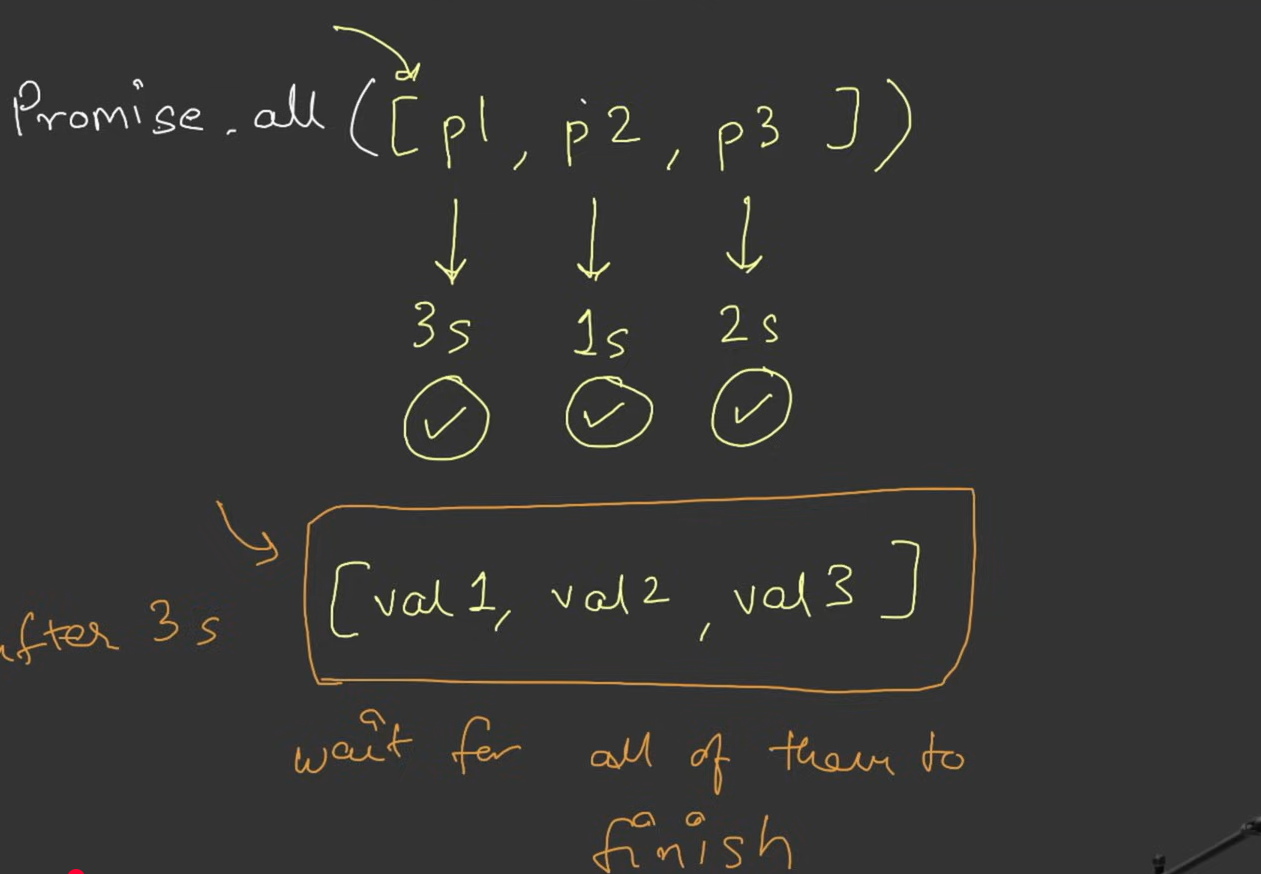 Promise.all([p1, p2, p3])
3s 1s 2s
[val1, val2, val3]
after 3s
wait for all of them to
finish